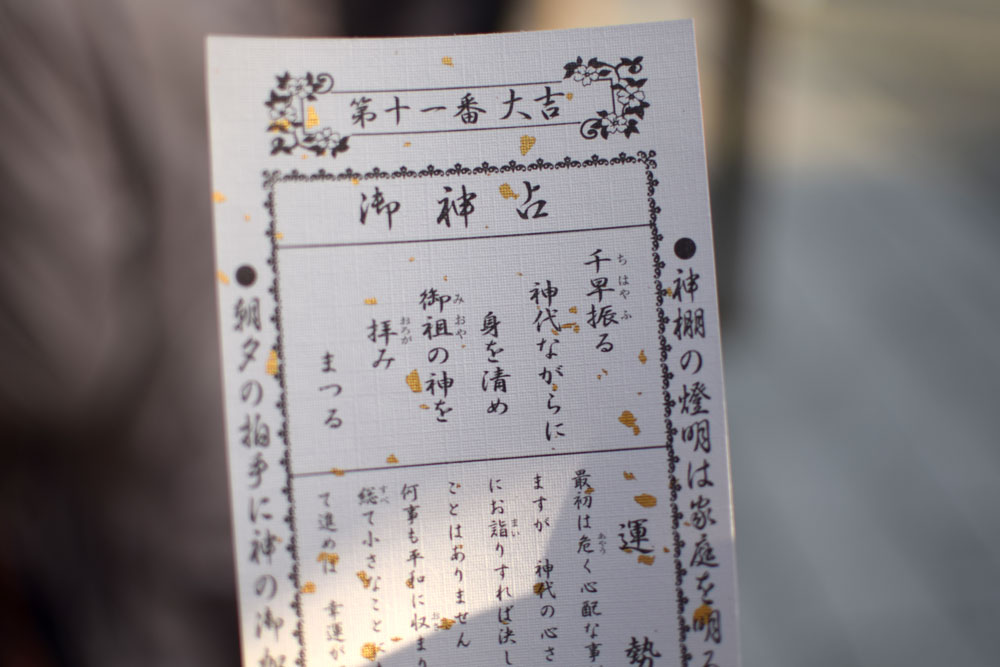 第十一番 大吉
御神占
●神棚の燈明は家庭を明
千早振る
ちはやふ
神代ながらに
身を清め
御祖の神を
みおや
拝み
おろが
まつる
運勢
最初は危く心配な事
あやう
ますが 神代の心さ
にお詣りすれば決し
まい
ごとはありません
何事も平和に収まり
おさ
総て小さなこと
すべ
て進めば 幸運が
●朝夕の拍手に神の御